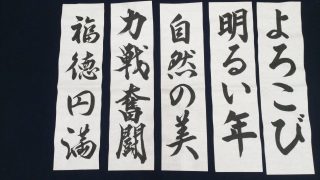 よろこび
明るい年
自然の美
力戦奮闘
福徳円満